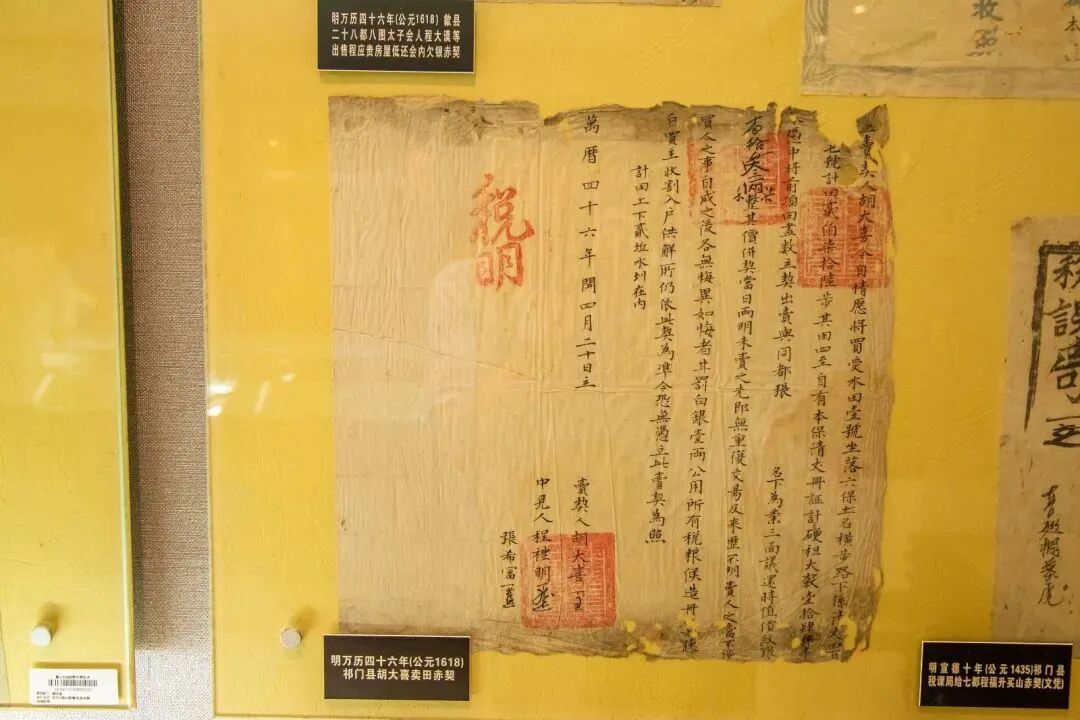 明万历四十六年(公元1618) 歙县
二十八都八图太子会人程大谟等
出售程应贵房屋低还会内欠银赤契
立賣契人胡大喜今自情愿將買受水田壹號坐落六保土名橫步路下係
七號計田貳佰柒拾陸步其田四至自有本保清丈冊証計硬租大穀壹拾肆
憑中將前項田盡數立契出賣與同都張 名下為業三面議還時值價紋銀
拾叁兩整其價併契當日兩明未賣之先即無重復交易及来歷不明賣人之當不涉
買人之事自成之後各無悔異如悔者甘罰白銀壹両公用所有稅粮候造冊聽
自買主收割入户供解所仍依此契為準今恐無憑立此賣契為照
計田上下貳坵水圳在内
萬曆四十六年閏四月二十日立
賣契人胡大喜
中見人程禮明
張希富
稅明
明万历四十六年(公元1618)
祁门县胡大喜卖田赤契
收照
本
明宣德十年(公元1435)祁门县
税课局给七都程福升买山赤契(文凭)